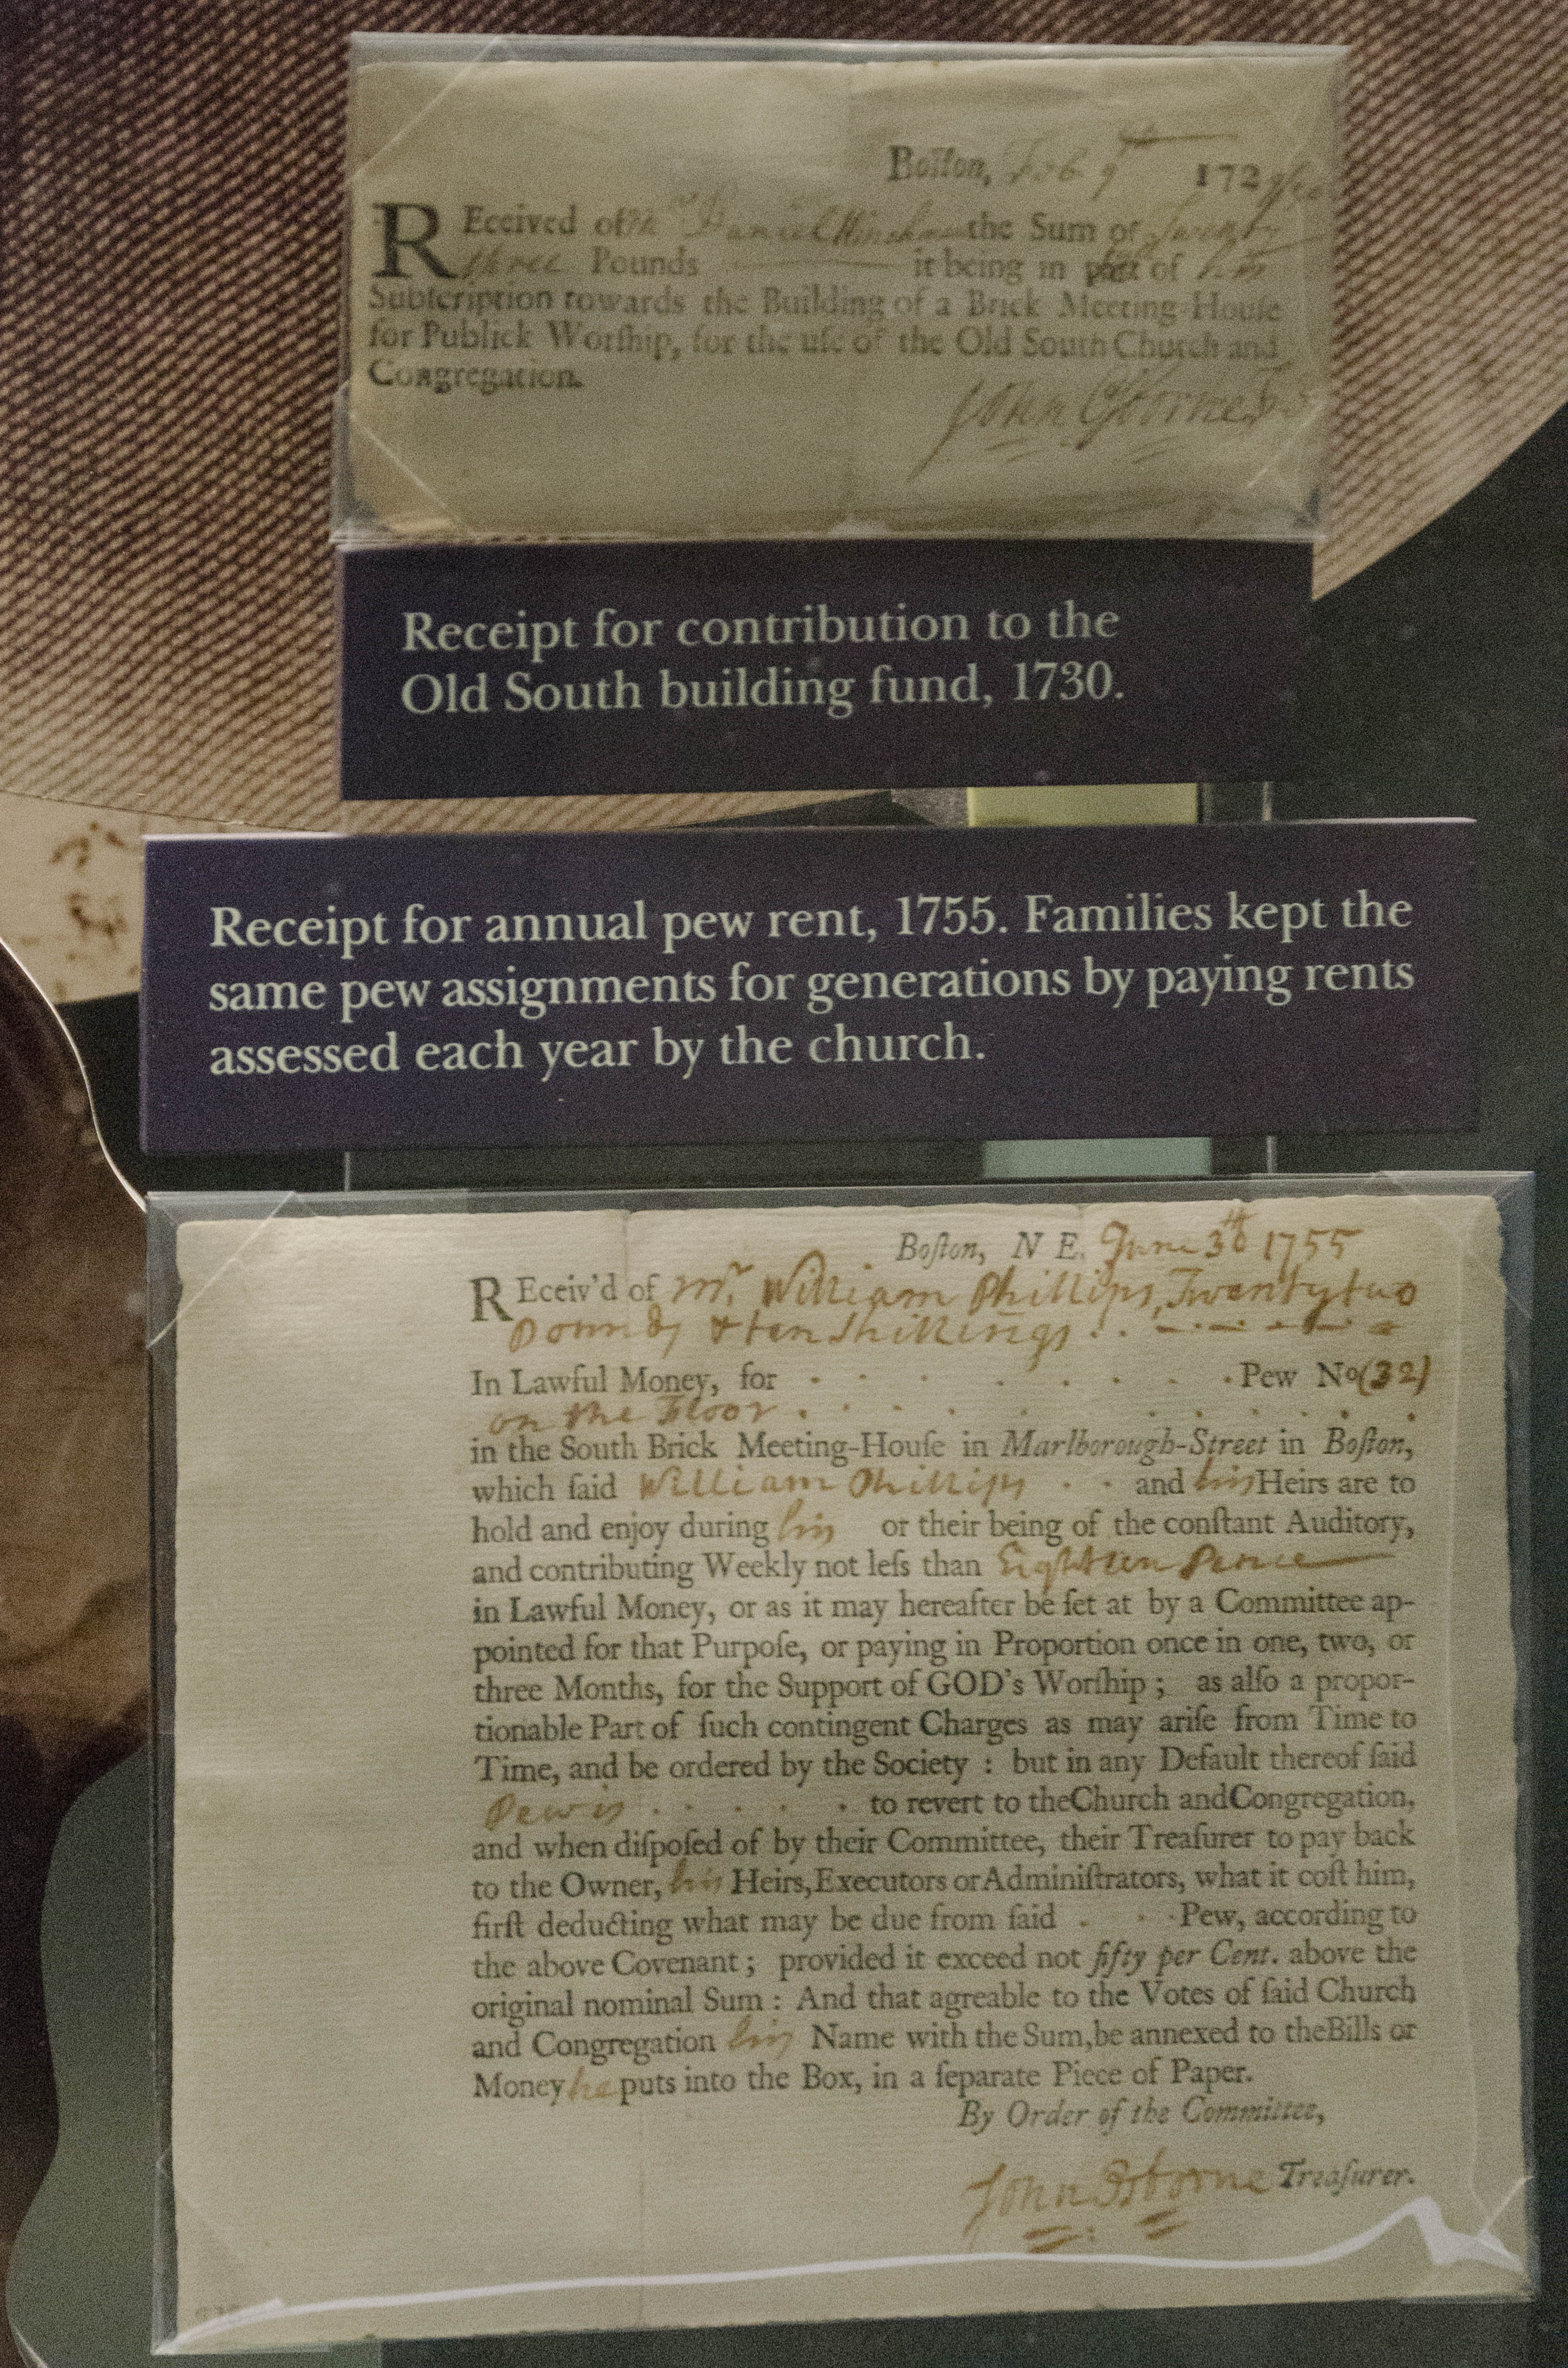 Boston, Feb 9th 1729/30
REceived of Mr Daniel Henchman the Sum of Twenty
three Pounds it being in part of his
Subscription towards the Building of a Brick Meeting-Houſe
for Publick Worſhip, for the uſe of the Old South Church and
Congregation.
John Osborne
Receipt for contribution to the
Old South building fund, 1730.
Receipt for annual pew rent, 1755. Families kept the
same pew assignments for generations by paying rents
assessed each year by the church.
Boſton, N E. June 30th 1755
REceiv'd of Mr. William Phillips, Twenty two
Pounds & ten Shillings . .
In Lawful Money, for . . . . . . . . Pew No (32)
on the Floor . . . . . . . . .
in the South Brick Meeting-Houſe in Marlborough-Street in Boſton,
which ſaid William Phillips . . and his Heirs are to
hold and enjoy during his or their being of the conſtant Auditory,
and contributing Weekly not leſs than Eighteen Pence
in Lawful Money, or as it may hereafter be ſet at by a Committee ap-
pointed for that Purpoſe, or paying in Proportion once in one, two, or
three Months, for the Support of GOD's Worſhip ; as alſo a propor-
tionable Part of ſuch contingent Charges as may ariſe from Time to
Time, and be ordered by the Society : but in any Default thereof ſaid
Pew is . . . . . to revert to the Church and Congregation,
and when diſpoſed of by their Committee, their Treaſurer to pay back
to the Owner, his Heirs, Executors or Adminiſtrators, what it coſt him,
firſt deducting what may be due from ſaid . . . Pew, according to
the above Covenant ; provided it exceed not fifty per Cent. above the
original nominal Sum : And that agreable to the Votes of ſaid Church
and Congregation his Name with the Sum, be annexed to the Bills or
Money he puts into the Box, in a ſeparate Piece of Paper.
By Order of the Committee,
John Osborne Treaſurer.